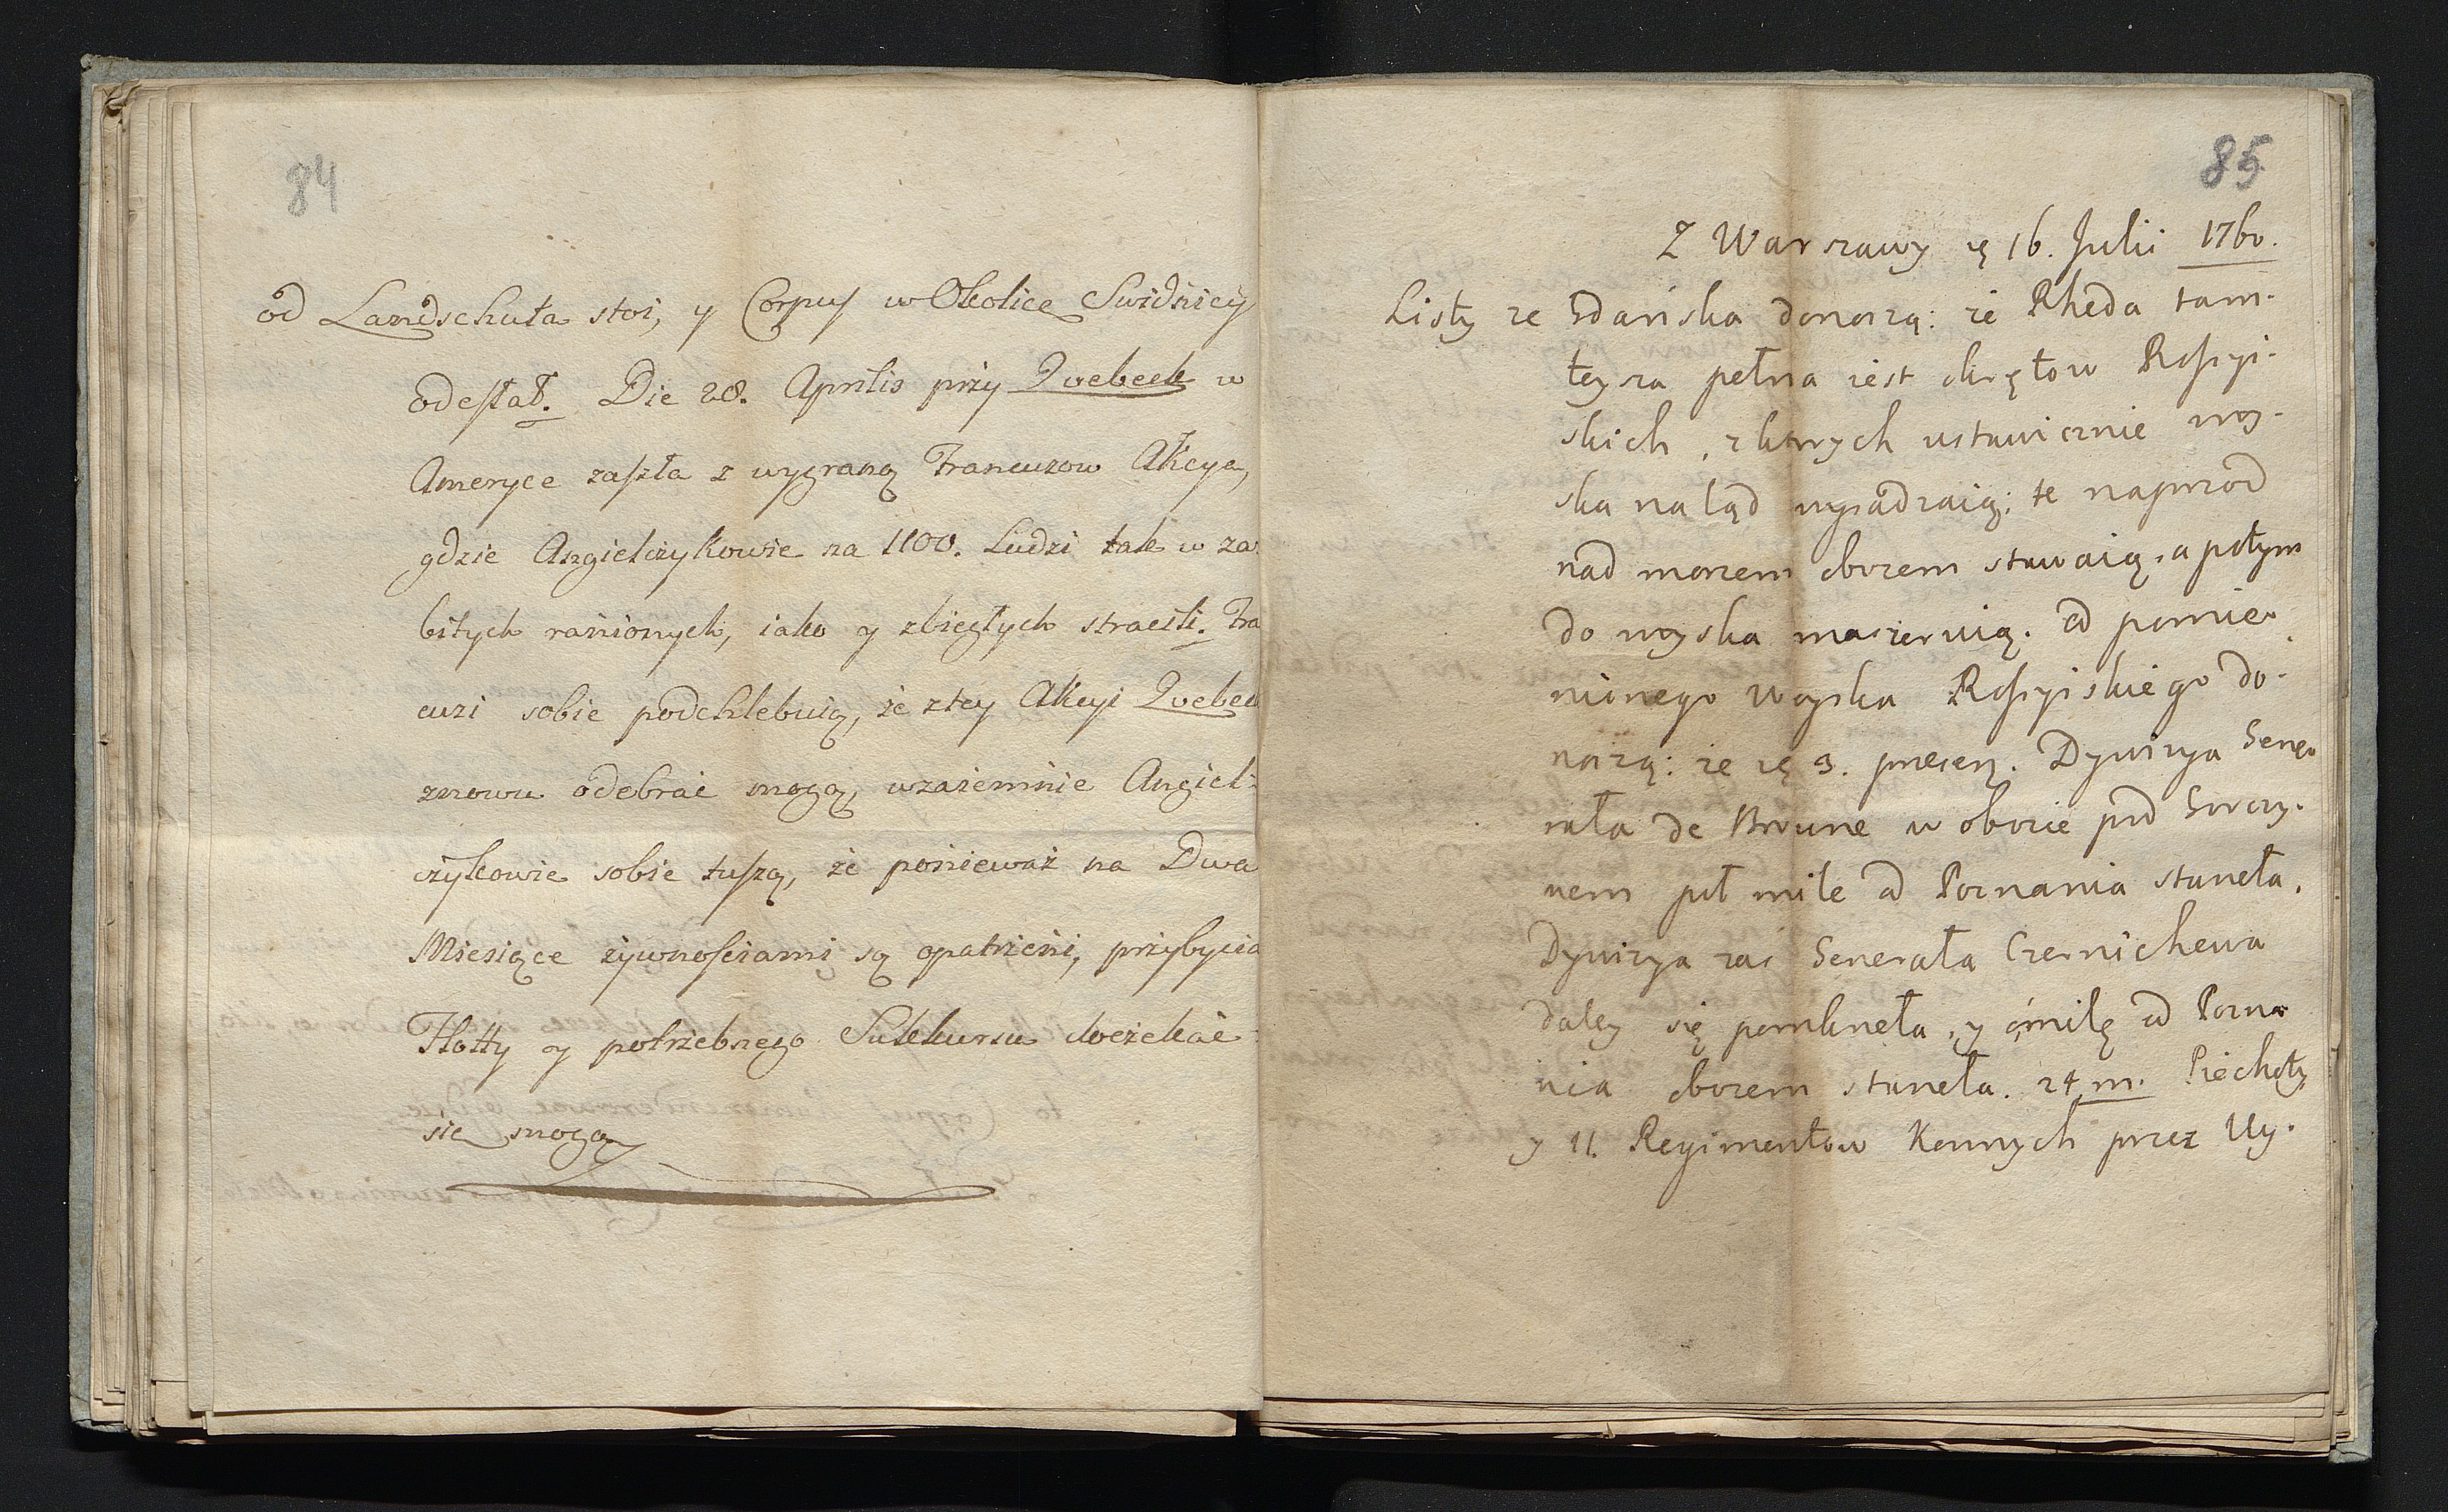 84
od Landschuta stoi, y Corpus w Okolice Swidnicy
odesłał. Die 28. Aprilis przy Qvebeck w
Ameryce zaszła z wygraną Francuzow Akcya,
gdzie Angielczykowie na 1100. Ludzi tak w za
bitych ranionych, iako y zbiegłych stracili. Fra
cuzi sobie podchlebuią, że z tey Akcyi Qvebec
znowu odebrać mogą, wzaiemnie Angiel:
czykowie sobie tuszą, że ponieważ na Dwa
Miesiące żywnościami są opatrzeni, przybycia
Flotty y potrzebnego Sukkursu doczekać
się mogą
85
Z Warszawy 16. Julii 1760.
Listy ze Gdańska donoszą: że Rheda tam-
teysza pełna iest okrętow Rossyi-
skich, z ktorych ustawicznie woy-
ska na ląd wysadzaią; te naprzod
nad morzem obozem stawaią, a potym
do woyska maszeruią. Od pomie-
nionego woyska Rossyiskiego do-
noszą: że 3. presen. Dywizya Gene-
rała de Broune w obozie pod Gorczy-
nem puł mile od Poznania staneła.
Dywizya zaś Generała Czernichewa
daley się pomkneła, y milę od Pozna
nia obozem staneła. 24 m. Piechoty
y 11. Regimentow Konnych przez Uy-